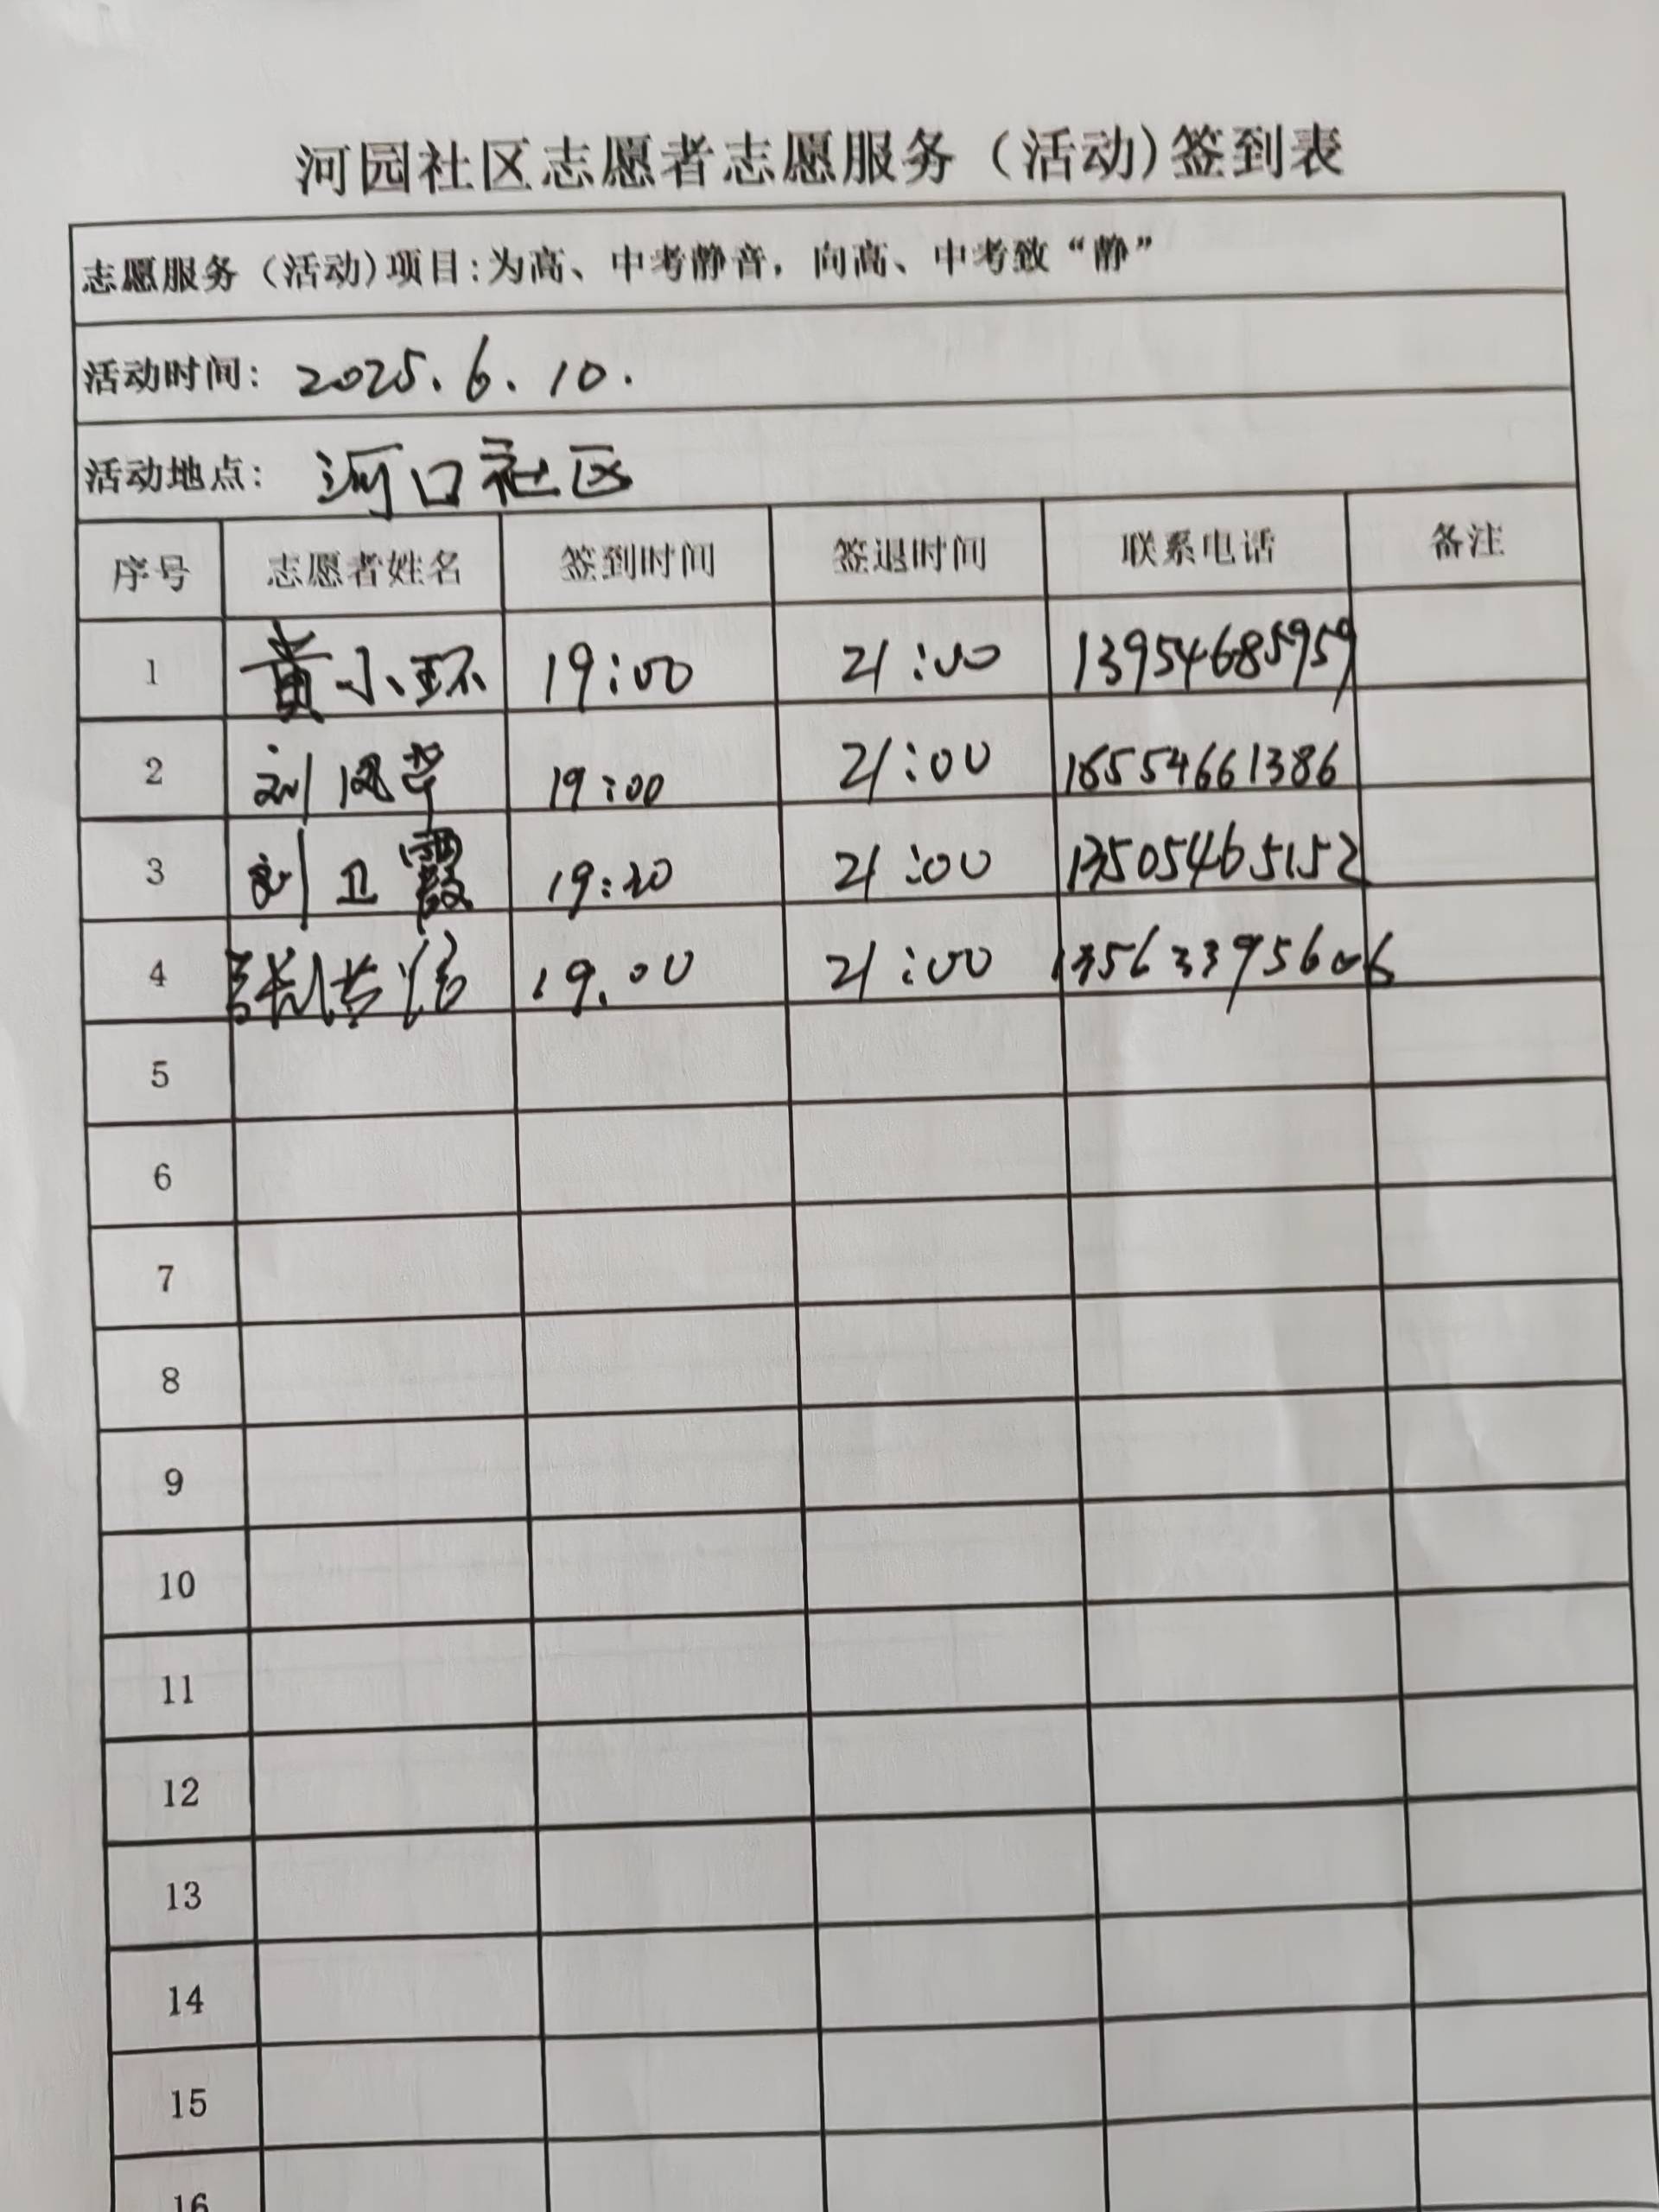 河园社区志愿者志愿服务（活动)签到表
志愿服务（活动)项目:为高、中考静音，向高、中考致“静”
活动时间: 2025.6.10.
活动地点: 河口社区
序号 志愿者姓名 签到时间 签退时间 联系电话 备注
1 黄小环 19:00 21:00 13954685959
2 刘风华 19:00 21:00 16554661386
3 刘卫霞 19:20 21:00 13505465152
4 19.00 21:00 13563395606
5
6
7
8
9
10
11
12
13
14
15
16